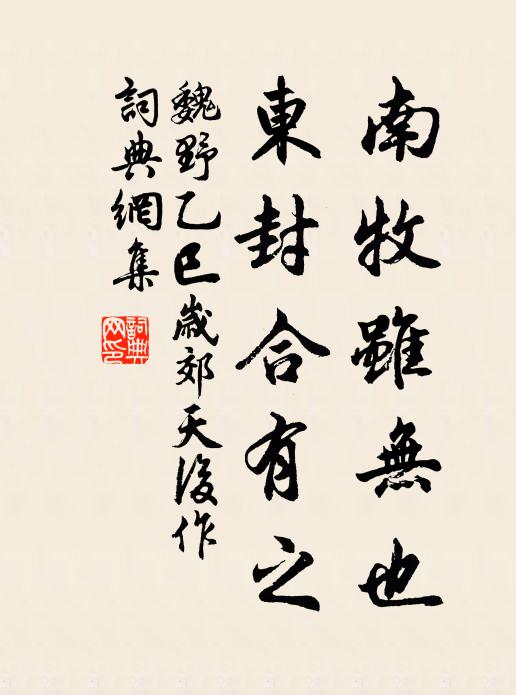 南牧雖無也
東封合有之
魏野乙巳歲郊天後作
詞典網集
詞典
网印